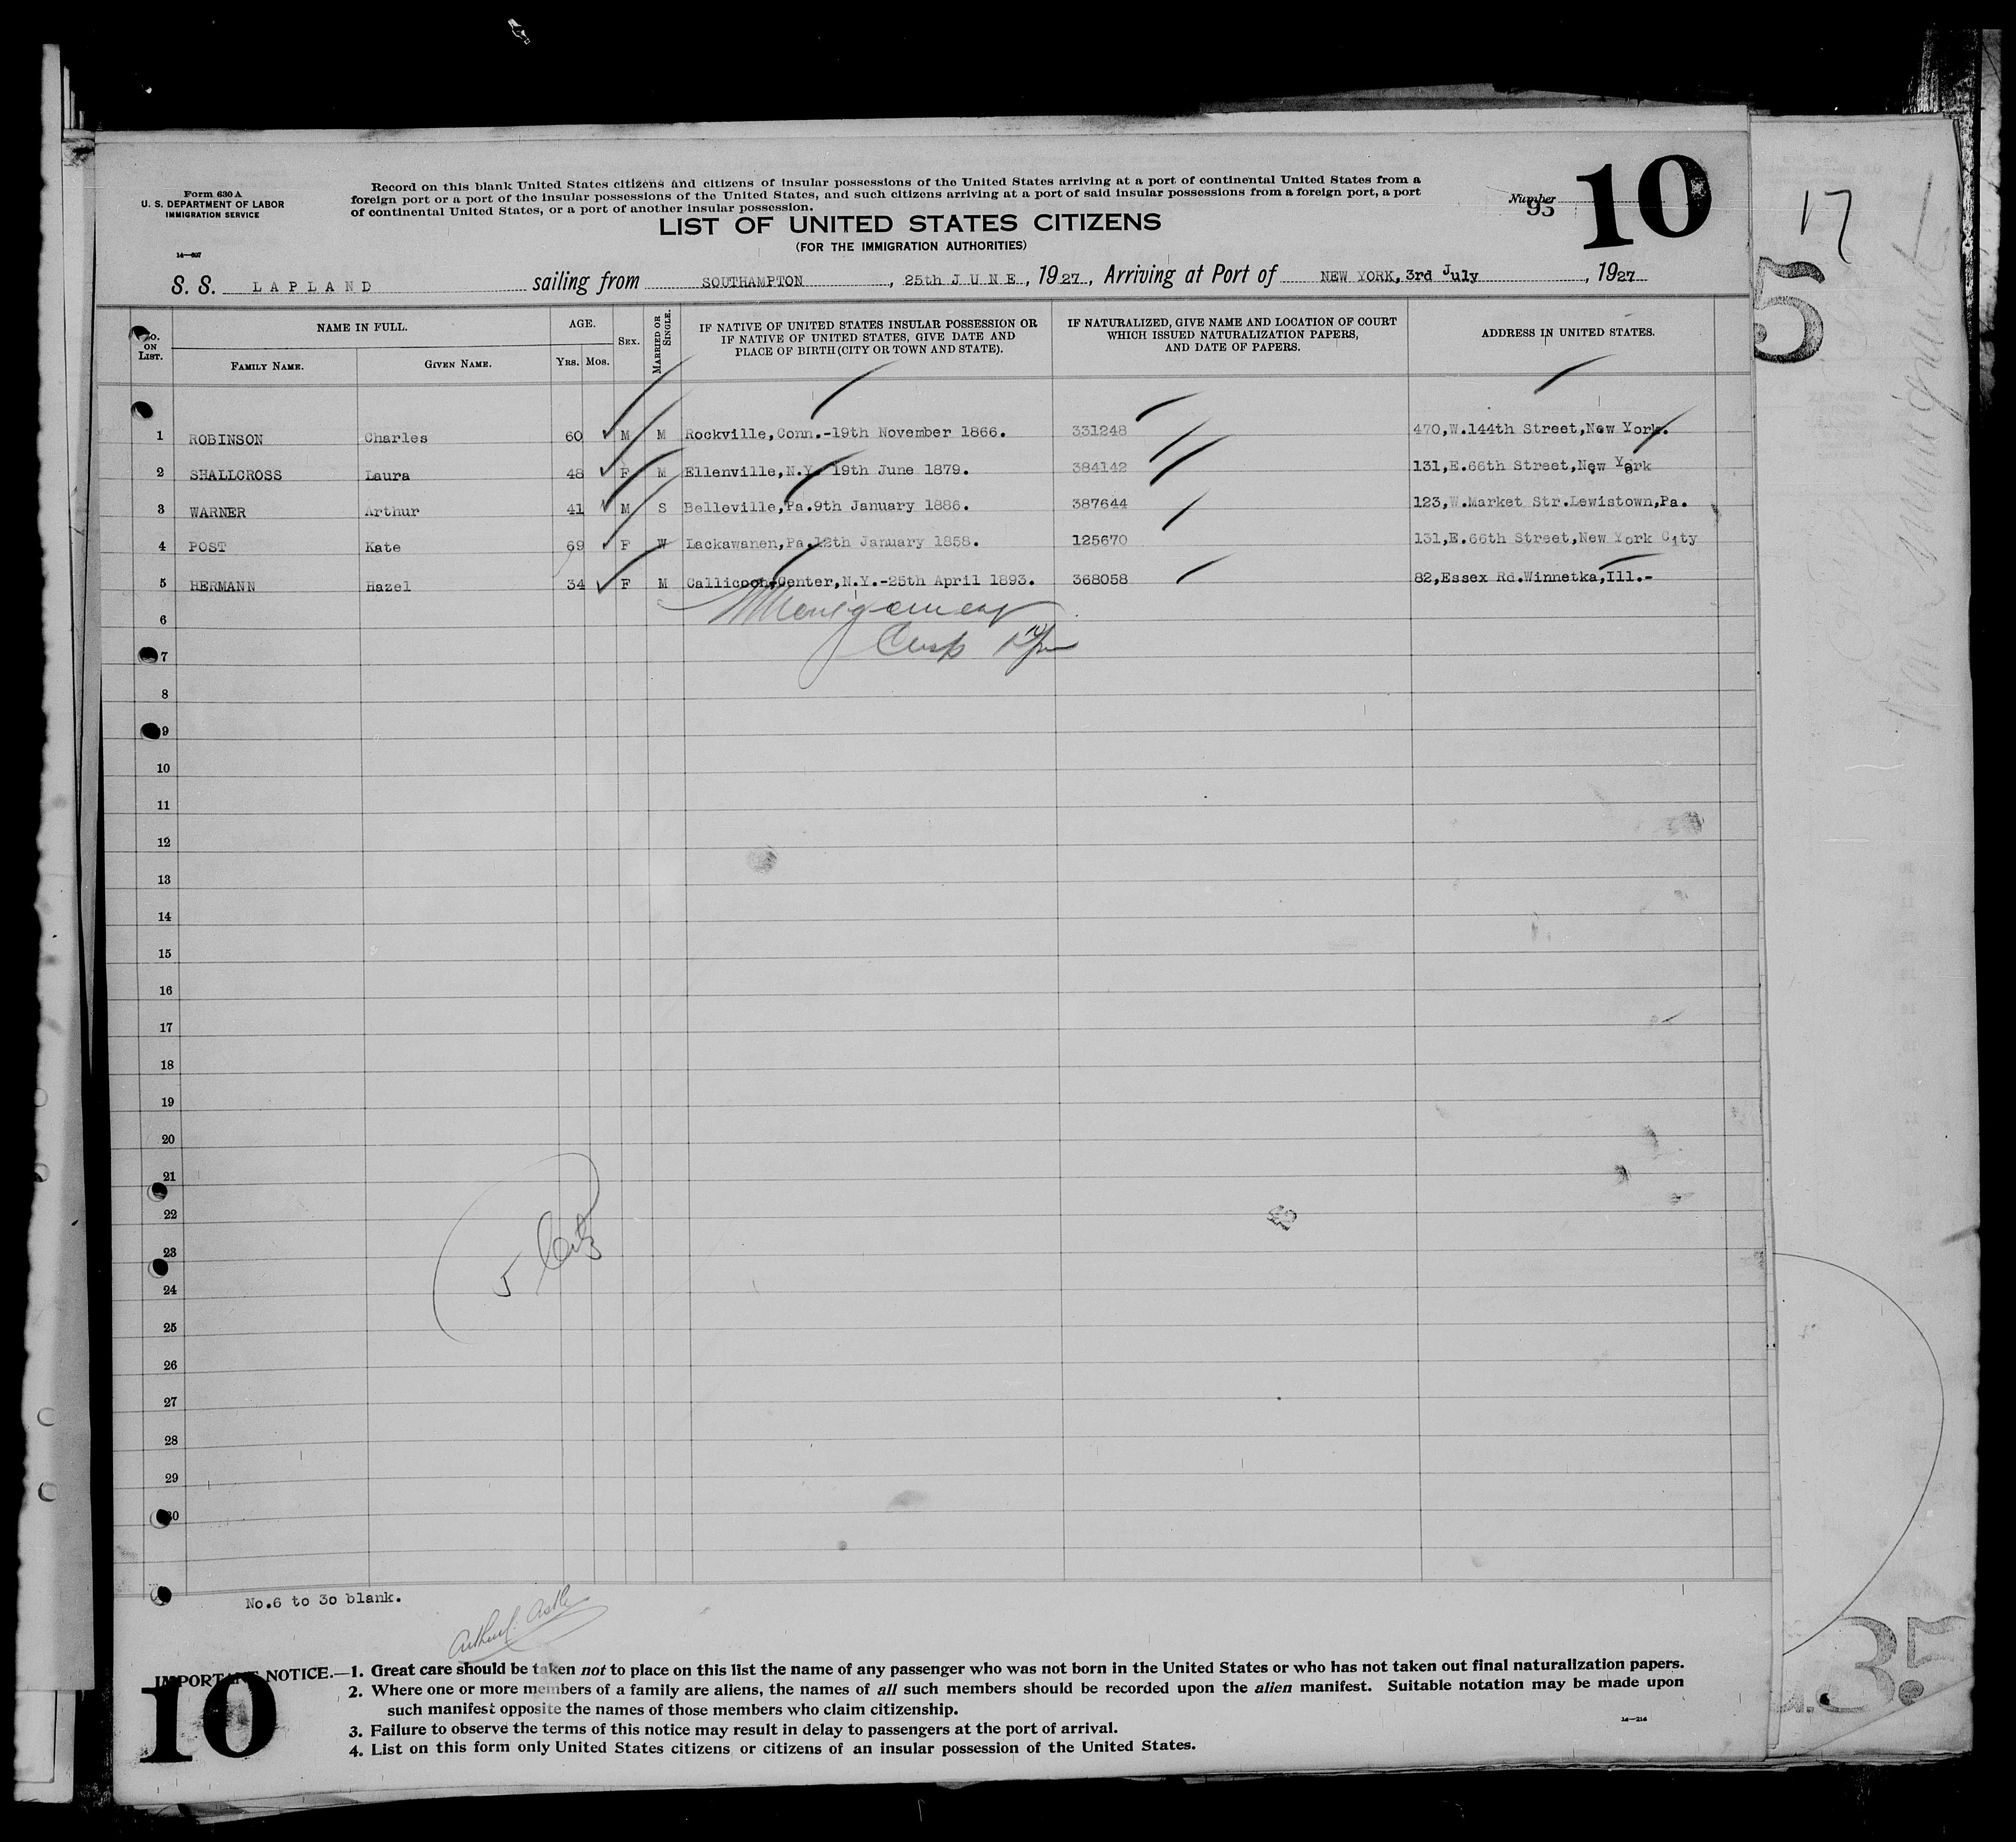 Form 630 A
U. S. DEPARTMENT OF LABOR
IMMIGRATION SERVICE
Record on this blank United States citizens and citizens of insular possessions of the United States arriving at a port of continental United States from a
foreign port or a port of the insular possessions of the United States, and such citizens arriving at a port of said insular possessions from a foreign port, a port
of continental United States, or a port of another insular possession.
Number 95
10
17
LIST OF UNITED STATES CITIZENS
(FOR THE IMMIGRATION AUTHORITIES)
S. S. LAPLAND sailing from SOUTHAMPTON, 25th JUNE, 1927, Arriving at Port of NEW YORK, 3rd July, 1927
5
No. ON LIST. NAME IN FULL. AGE. SEX. MARRIED OR SINGLE. IF NATIVE OF UNITED STATES INSULAR POSSESSION OR IF NATIVE OF UNITED STATES, GIVE DATE AND PLACE OF BIRTH (CITY OR TOWN AND STATE). IF NATURALIZED, GIVE NAME AND LOCATION OF COURT WHICH ISSUED NATURALIZATION PAPERS, AND DATE OF PAPERS. ADDRESS IN UNITED STATES.
FAMILY NAME. GIVEN NAME. YRS. MOS.
1 ROBINSON Charles 60 M M Rockville,Conn.-19th November 1866. 331248 470,W.144th Street,New York.
2 SHALLCROSS Laura 48 F M Ellenville,N.Y. 19th June 1879. 384142 131,E.66th Street,New York
3 WARNER Arthur 41 M S Belleville,Pa.9th January 1886. 387644 123,W.Market Str.Lewistown,Pa.
4 POST Kate 69 F W Lackawanen,Pa.12th January 1858. 125670 131,E.66th Street,New York City
5 HERMANN Hazel 34 F M Callicoon,Center,N.Y.-25th April 1893. 368058 82,Essex Rd.Winnetka,Ill.-
6
Montgomery
7
8
9
10
11
12
13
14
15
16
17
18
19
20
21
22
23
5
24
25
26
27
28
29
30
No.6 to 30 blank.
IMPORTANT NOTICE.—1. Great care should be taken not to place on this list the name of any passenger who was not born in the United States or who has not taken out final naturalization papers.
2. Where one or more members of a family are aliens, the names of all such members should be recorded upon the alien manifest. Suitable notation may be made upon
such manifest opposite the names of those members who claim citizenship.
3. Failure to observe the terms of this notice may result in delay to passengers at the port of arrival.
4. List on this form only United States citizens or citizens of an insular possession of the United States.
10
35